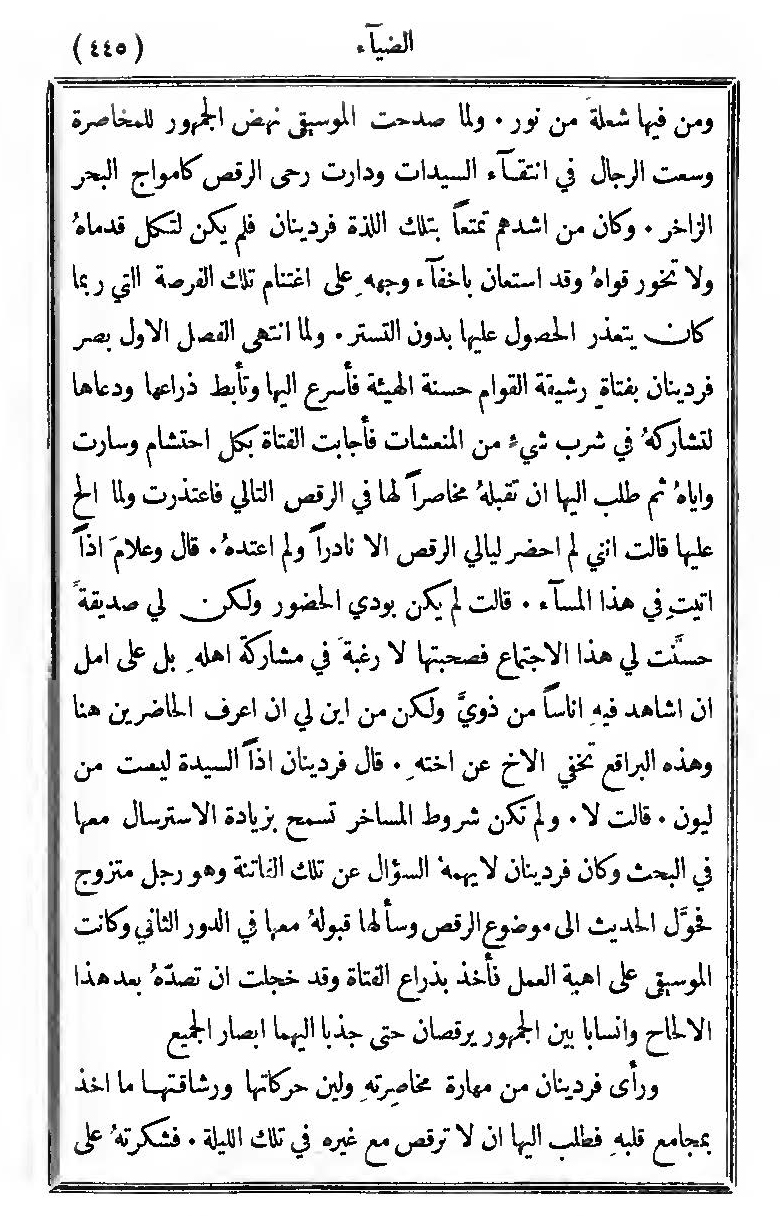 الضيآء
(٤٤٥)
ومن فيها شعلةً من نور ٠ ولما صدحت الموسيقى نهض الجمهور للمخاصرة
وسعت الرجال في انتقآء السيدات ودارت رحى الرقص كامواج البحر
الزاخر ٠ وكان من اشدهم تمتعاً بتلك اللذة فردينان فلم يكن لتكل قدماهُ
ولا تخور قواهُ وقد استعان باخفآء وجههِ على اغتنام تلك الفرصة التي ربما
كان يتعذر الحصول عليها بدون التستر ٠ ولما انتهى الفصل الاول بصر
فردينان بفتاةٍ رشيقة القوام حسنة الهيئة فأسرع اليها وتأبط ذراعها ودعاها
لتشاركهُ في شرب شيءٍ من المنعشات فأجابت الفتاة بكل احتشام وسارت
واياهُ ثم طلب اليها ان تقبلهُ مخاصراً لها في الرقص التالي فاعتذرت ولما الح
عليها قالت انني لم احضر ليالي الرقص الا نادراً ولم اعتدهُ ٠ قال وعلامَ اذاً
اتيتِ في هذا المسآء ٠ قالت لم يكن بودي الحضور ولكن لي صديقةً
حسَّنت لي هذا الاجتماع فصحبتها لا رغبةً في مشاركة اهلهِ بل على امل
ان اشاهد فيهِ اناساً من ذويَّ ولكن من اين لي ان اعرف الحاضرين هنا
وهذه البراقع تخفي الاخ عن اختهِ ٠ قال فردينان اذاً السيدة ليست من
ليون ٠ قالت لا ٠ ولم تكن شروط المساخر تسمح بزيادة الاسترسال معها
في البحث وكان فردينان لا يهمهُ السؤال عن تلك الفاتنة وهو رجل متزوج
فحوَّل الحديث الى موضوع الرقص وسألها قبولهُ معها في الدور الثاني وكانت
الموسيقى على اهبة العمل فأخذ بذراع الفتاة وقد خجلت ان تصدّهُ بعد هذا
الالحاح وانسابا بين الجمهور يرقصان حتى جذبا اليهما ابصار الجميع
ورأى فردينان من مهارة مخاصِرتهِ ولين حركاتها ورشاقتها ما اخذ
بمجامع قلبهِ فطلب اليها ان لا ترقص مع غيره في تلك الليلة ٠ فشكرتهُ على